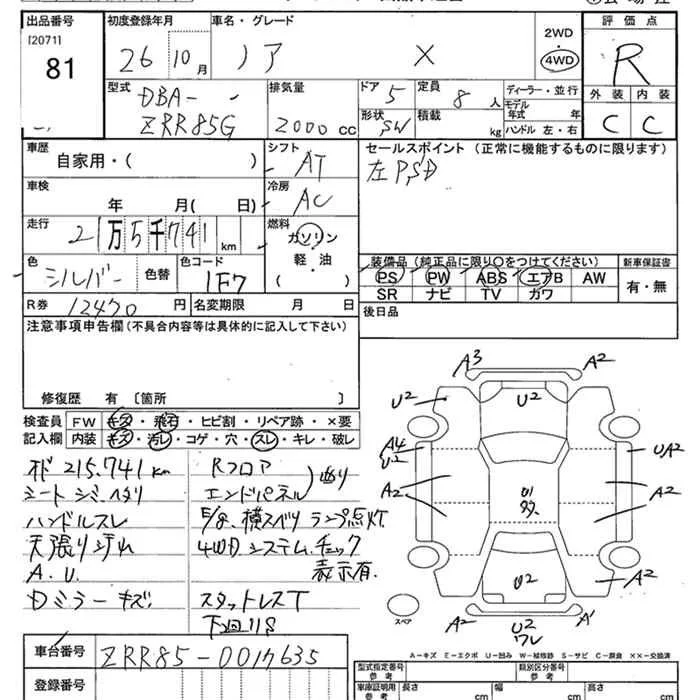 出品番号 初度登録年月 車名・グレード 評価点
[2071]
81
26 10月 ノア X
2WD
4WD
R
型式 DBA-
ZRR85G
排気量 2000 cc
ドア 5
定員 8 人
形状 SW
積載 kg
ディーラー・並行
モデル
年式 年
ハンドル 左・右
外装 内装
C C
車歴 自家用・( )
シフト AT
セールスポイント (正常に機能するものに限ります)
左PSD
車検 年 月( 日)
冷房 AC
走行 2 1万5千741 km
燃料 ガソリン
軽・油
( )
色 シルバー 色替
色コード 1F7
装備品 (純正品に限り○をつけてください) 新車保証書
PS PW ABS エアB AW
SR ナビ TV カワ
有・無
R券 12470 円 名変期限 月 日
後日品
注意事項申告欄 (不具合内容等は具体的に記入して下さい)
修復歴 有 〔箇所 〕
検査員 FW キズ・飛石・ヒビ割・リペア跡・×要
記入欄 内装 キズ・汚レ・コゲ・穴・スレ・キレ・破レ
215.741 km
シート シミ.ヘタリ
ハンドルスレ
天張り汚れ
A.U.
Dミラーキズ
Rフロア
エンドパネル
F/8.横スベリランプ点灯
4WDシステム.チェック
表示有.
スタットレスT
下廻りS
A3 A2
U2 U2
A4 U2 UA2
A2 A2
U2 A2
A2 U2 A1
ワレ
スペア
A-キズ E-エクボ U-凹み W-補修跡 S-サビ C-腐食 XX-交換済
車台番号 ZRR85-0017635
登録番号
型式指定番号
参考
類別区分番号
参考
車庫証明用
参考
長さ cm 幅 cm 高さ cm